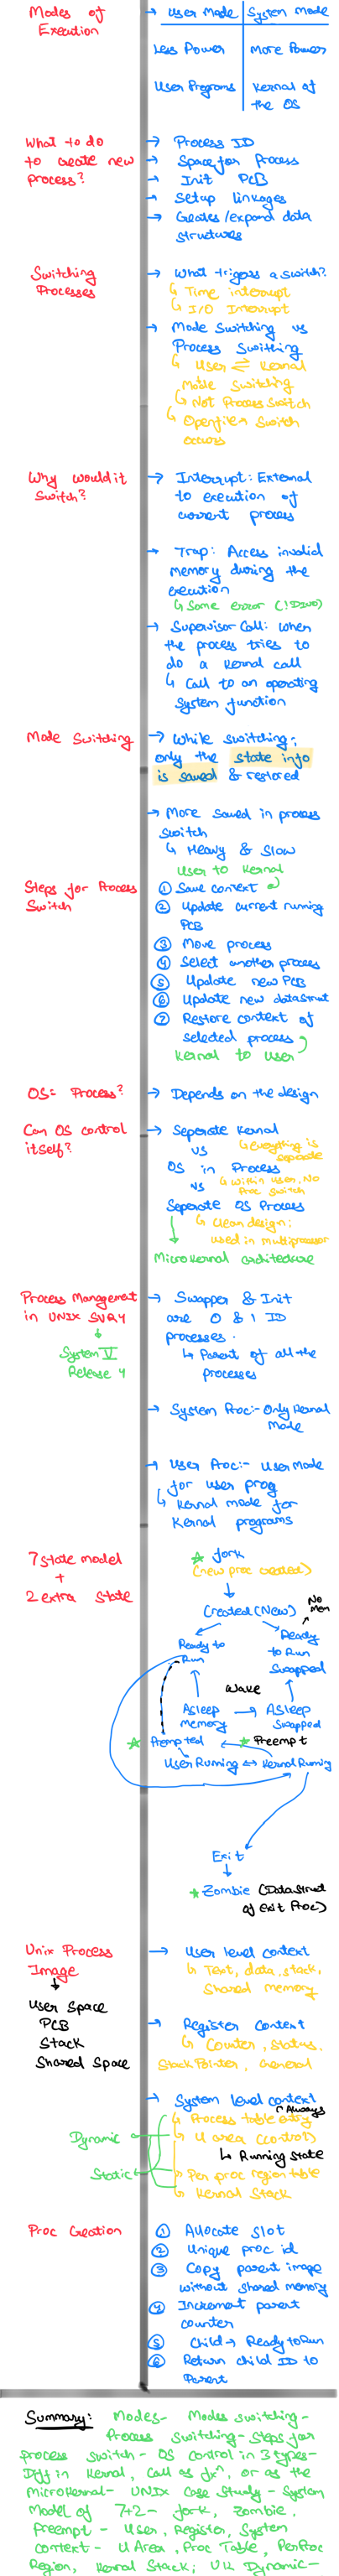 Modes of
Execution
→ User Mode | System Mode
Less Power | More Power
User Programs | Kernel of
the OS
What to do
to create new
process?
→ Process ID
→ Space for Process
→ Init PCB
→ Setup linkages
→ Creates/expand data
structures
Switching
Processes
→ What trigers a switch?
↳ Time interrupt
↳ I/O Interrupt
→ Mode Switching vs
Process Switching
↳ User ⇌ Kernal
Mode Switching
↳ Not Process Switch
↳ Openfile → Switch
occurs
Why would it
Switch?
→ Interrupt: External
to execution of
current process
→ Trap: Access invalid
memory during the
execution
↳ Some error (!DIV0)
→ Supervisor Call: when
the process tries to
do a kernal call
↳ Call to an operating
System function
Mode Switching
→ While switching;
only the state info
is saved & restored
→ More saved in process
switch
↳ Heavy & Slow
User to Kernal
Steps for Process
Switch
① Save context
② Update current running
PCB
③ Move process
④ Select another process
⑤ Update new PCB
⑥ Update new datastruct
⑦ Restore context of
selected process
Kernal to User
OS = Process?
→ Depends on the design
Can OS control
itself?
→ Seperate Kernal
↳ everything is
seperate
vs
OS in Process
↳ Within user, No
Proc switch
vs
Seperate OS Process
↳ Clean design;
used in multiprocessor
Microkernal architecture
Process Management
in UNIX SVR4
↓
System V
Release 4
→ Swapper & Init
are 0 & 1 ID
processes.
↳ Parent of all the
processes
→ System Proc:- Only Kernal
Mode
→ User Proc:- User Mode
for user prog
↳ Kernal mode for
Kernal programs
7 state model
+
2 extra state
☆ fork
(new proc created)
Created (New)
No
Mem
Ready to
Run
Ready
to Run
Swapped
Wake
Asleep
Memory
→ Asleep
Swapped
☆ Prempted
☆ Preempt
User Runing ↔ Kernal Runing
Exit
↓
☆ Zombie (Datastruct
of exit Proc)
Unix Process
Image
↓
User Space
PCB
Stack
Shared Space
→ User level context
↳ Text, data, stack,
Shared memory
→ Register Context
↳ Counter, Status,
Stack Pointer, General
→ System level context
↱ Always
↳ Process table entry
↳ U area (control)
↳ Running state
↳ Per proc region table
↳ Kernal Stack
Dynamic
Static
Proc Creation
① Allocate slot
② Unique proc id
③ Copy parent image
without shared memory
④ Increment parent
counter
⑤ Child → Ready to Run
⑥ Return child ID to
Parent
Summary: Modes- Modes switching-
Process Switching- Steps for
process switch - OS control in 3 types-
Diff in Kernal, Call as fxⁿ, or as the
Microkernal- UNIX Case Study - System
Model of 7+2 - fork, zombie,
Preempt - User, Register, System
Context - U Area, Proc Table, PerProc
Region, Kernal Stack;